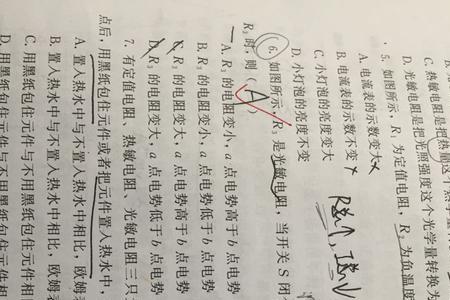 C. 热敏电阻是把热量这个热
D. 光敏电阻是把光照强度这个光学量转换为
5. 如图所示，R₁ 为定值电阻，R₂ 为负温度
A. 电流表的示数变大
B. 电流表的示数不变
C. 小灯泡的亮度变大
D. 小灯泡的亮度不变
6. 如图所示，R₃ 是光敏电阻，当开关 S 闭
R₃ 时，则 ( A )
A. R₃ 的电阻变小，a 点电势高于 b 点电势
B. R₃ 的电阻变小，a 点电势低于 b 点电势
R₃ 的电阻变大，a 点电势高于 b 点电势
R₃ 的电阻变大，a 点电势低于 b 点电势
7. 有定值电阻、热敏电阻、光敏电阻三只
点后，用黑纸包住元件或者把元件置入热水中，
A. 置入热水中与不置入热水中相比，欧姆
B. 置入热水中与不置入热水中相比，欧姆
C. 用黑纸包住元件与不用黑纸包住元件相
D. 用黑纸包住元件与不用黑纸包住元件相